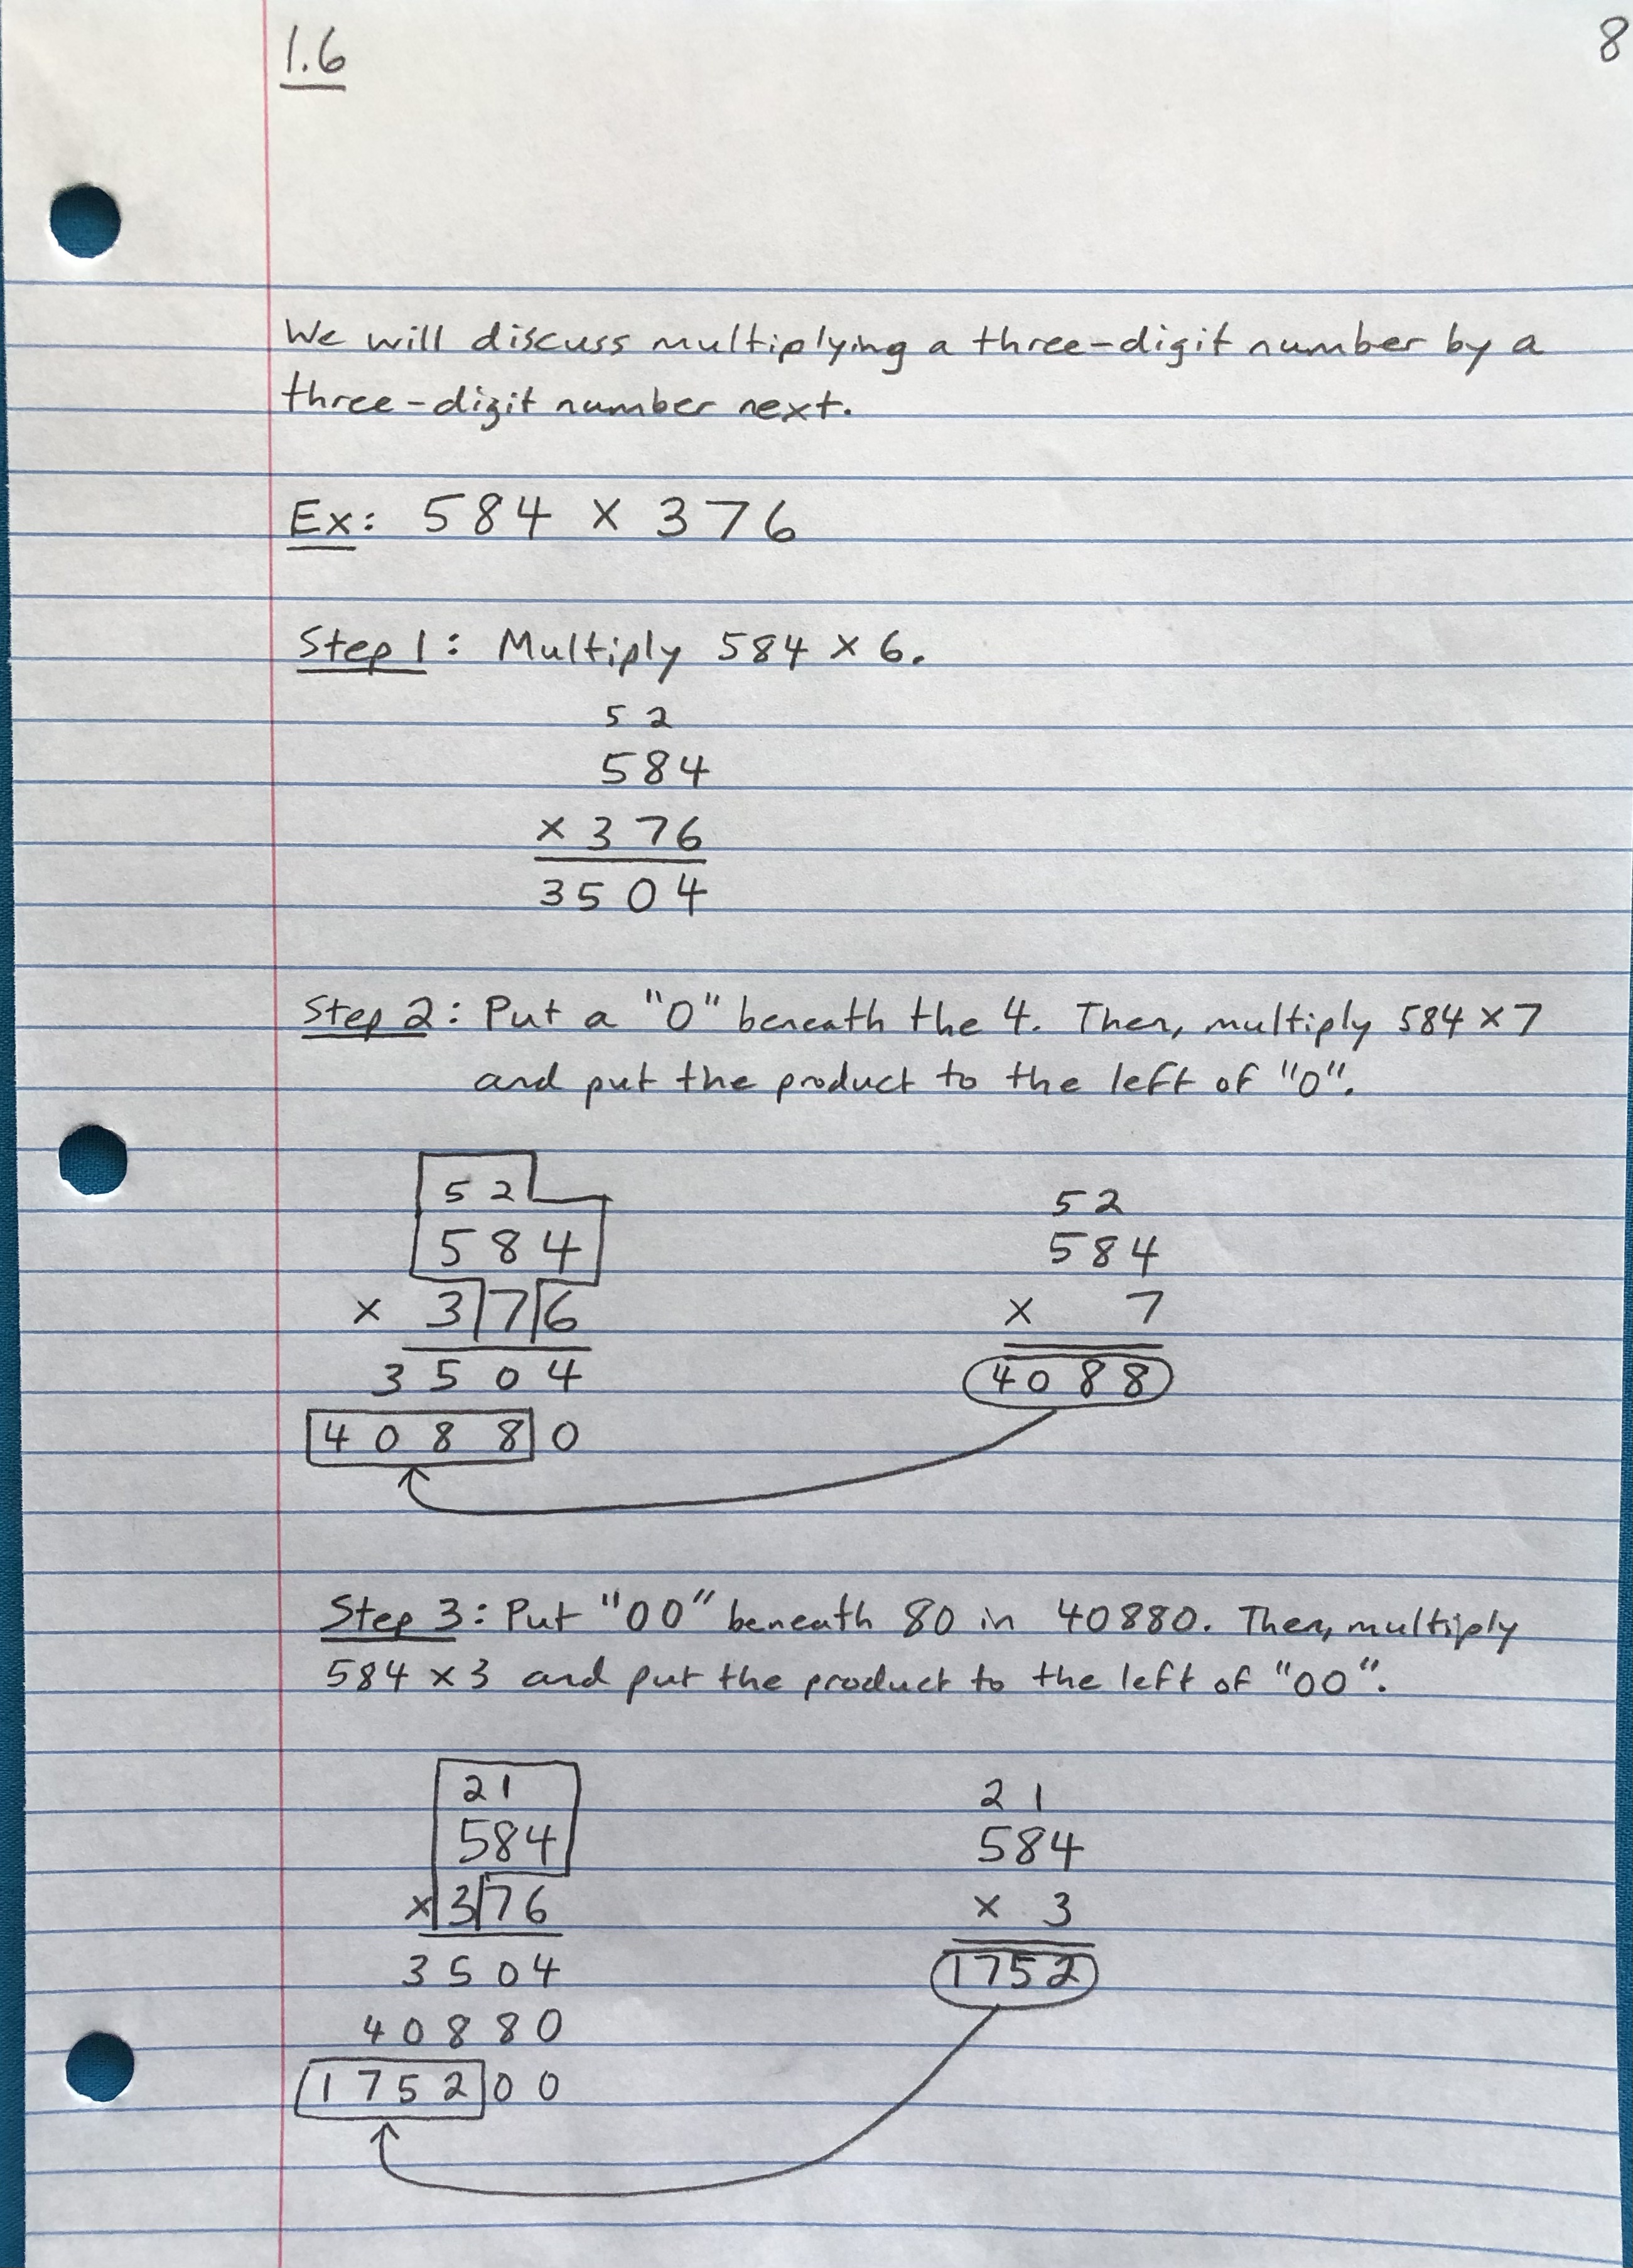 1.6 8
We will discuss multiplying a three-digit number by a
three-digit number next.
Ex: 584 × 376
Step 1: Multiply 584 × 6.
5 2
584
× 3 76
3 5 0 4
Step 2: Put a "0" beneath the 4. Then, multiply 584 × 7
and put the product to the left of "0".
5 2
5 8 4
× 3 7 6
3 5 0 4
4 0 8 8 0
5 2
5 8 4
× 7
4 0 8 8
Step 3: Put "00" beneath 80 in 40880. Then, multiply
584 × 3 and put the product to the left of "00".
2 1
584
× 3 76
3 5 0 4
4 0 8 8 0
1 7 5 2 0 0
2 1
584
× 3
1752